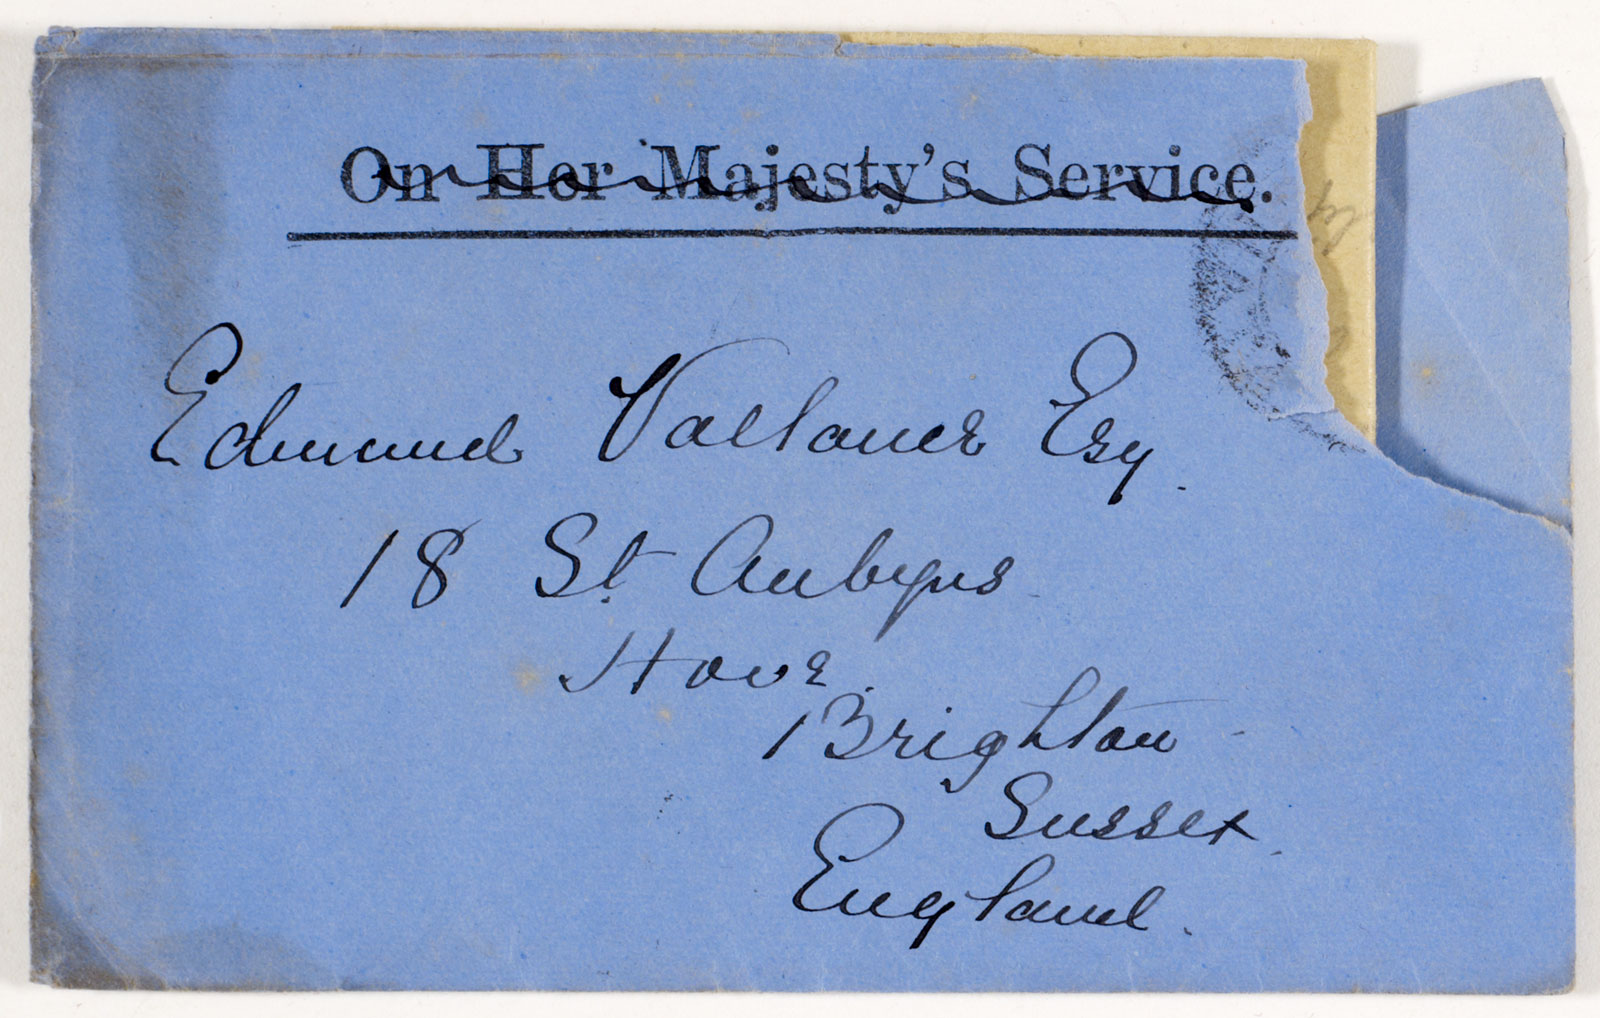 On Her Majesty's Service.
Edmund Vallance Esq.
18 St. Aubyns
Hove.
Brighton
Sussex.
England.